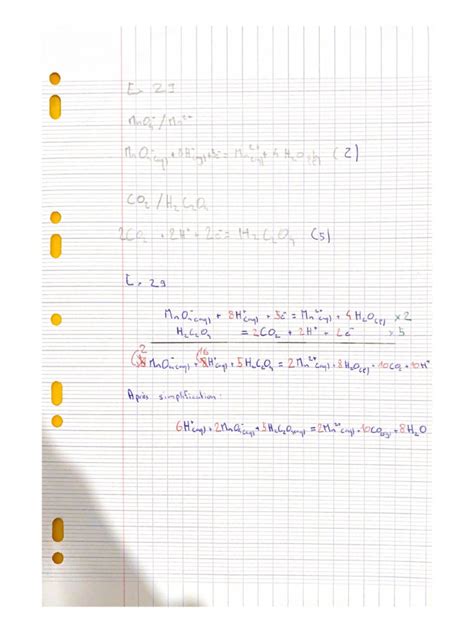 Ex 29
MnO₄⁻/Mn²⁺
MnO₄⁻(aq) + 8H⁺(aq) + 5e⁻ = Mn²⁺(aq) + 4H₂O(l) (2)
CO₂/H₂C₂O₄
2CO₂ + 2H⁺ + 2e⁻ = H₂C₂O₄ (5)
Ex 29
MnO₄⁻(aq) + 8H⁺(aq) + 5e⁻ = Mn²⁺(aq) + 4H₂O(l) ×2
H₂C₂O₄ = 2CO₂ + 2H⁺ + 2e⁻ ×5
2 MnO₄⁻(aq) + 16 H⁺(aq) + 5H₂C₂O₄ = 2Mn²⁺(aq) + 8H₂O(l) + 10CO₂ + 10H⁺
Après simplification :
6H⁺(aq) + 2MnO₄⁻(aq) + 5H₂C₂O₄(aq) = 2Mn²⁺(aq) + 10CO₂(g) + 8H₂O